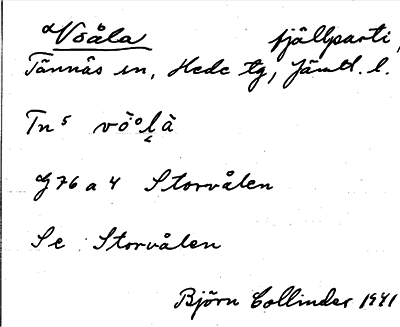 Våala fjällparti,
Tännäs sn, Hede tg, Jämtl. l.
Tn⁵ vo̊ᵒḷà
G 76 a 4 Storvålen
Se Storvålen
Björn Collinder 1941